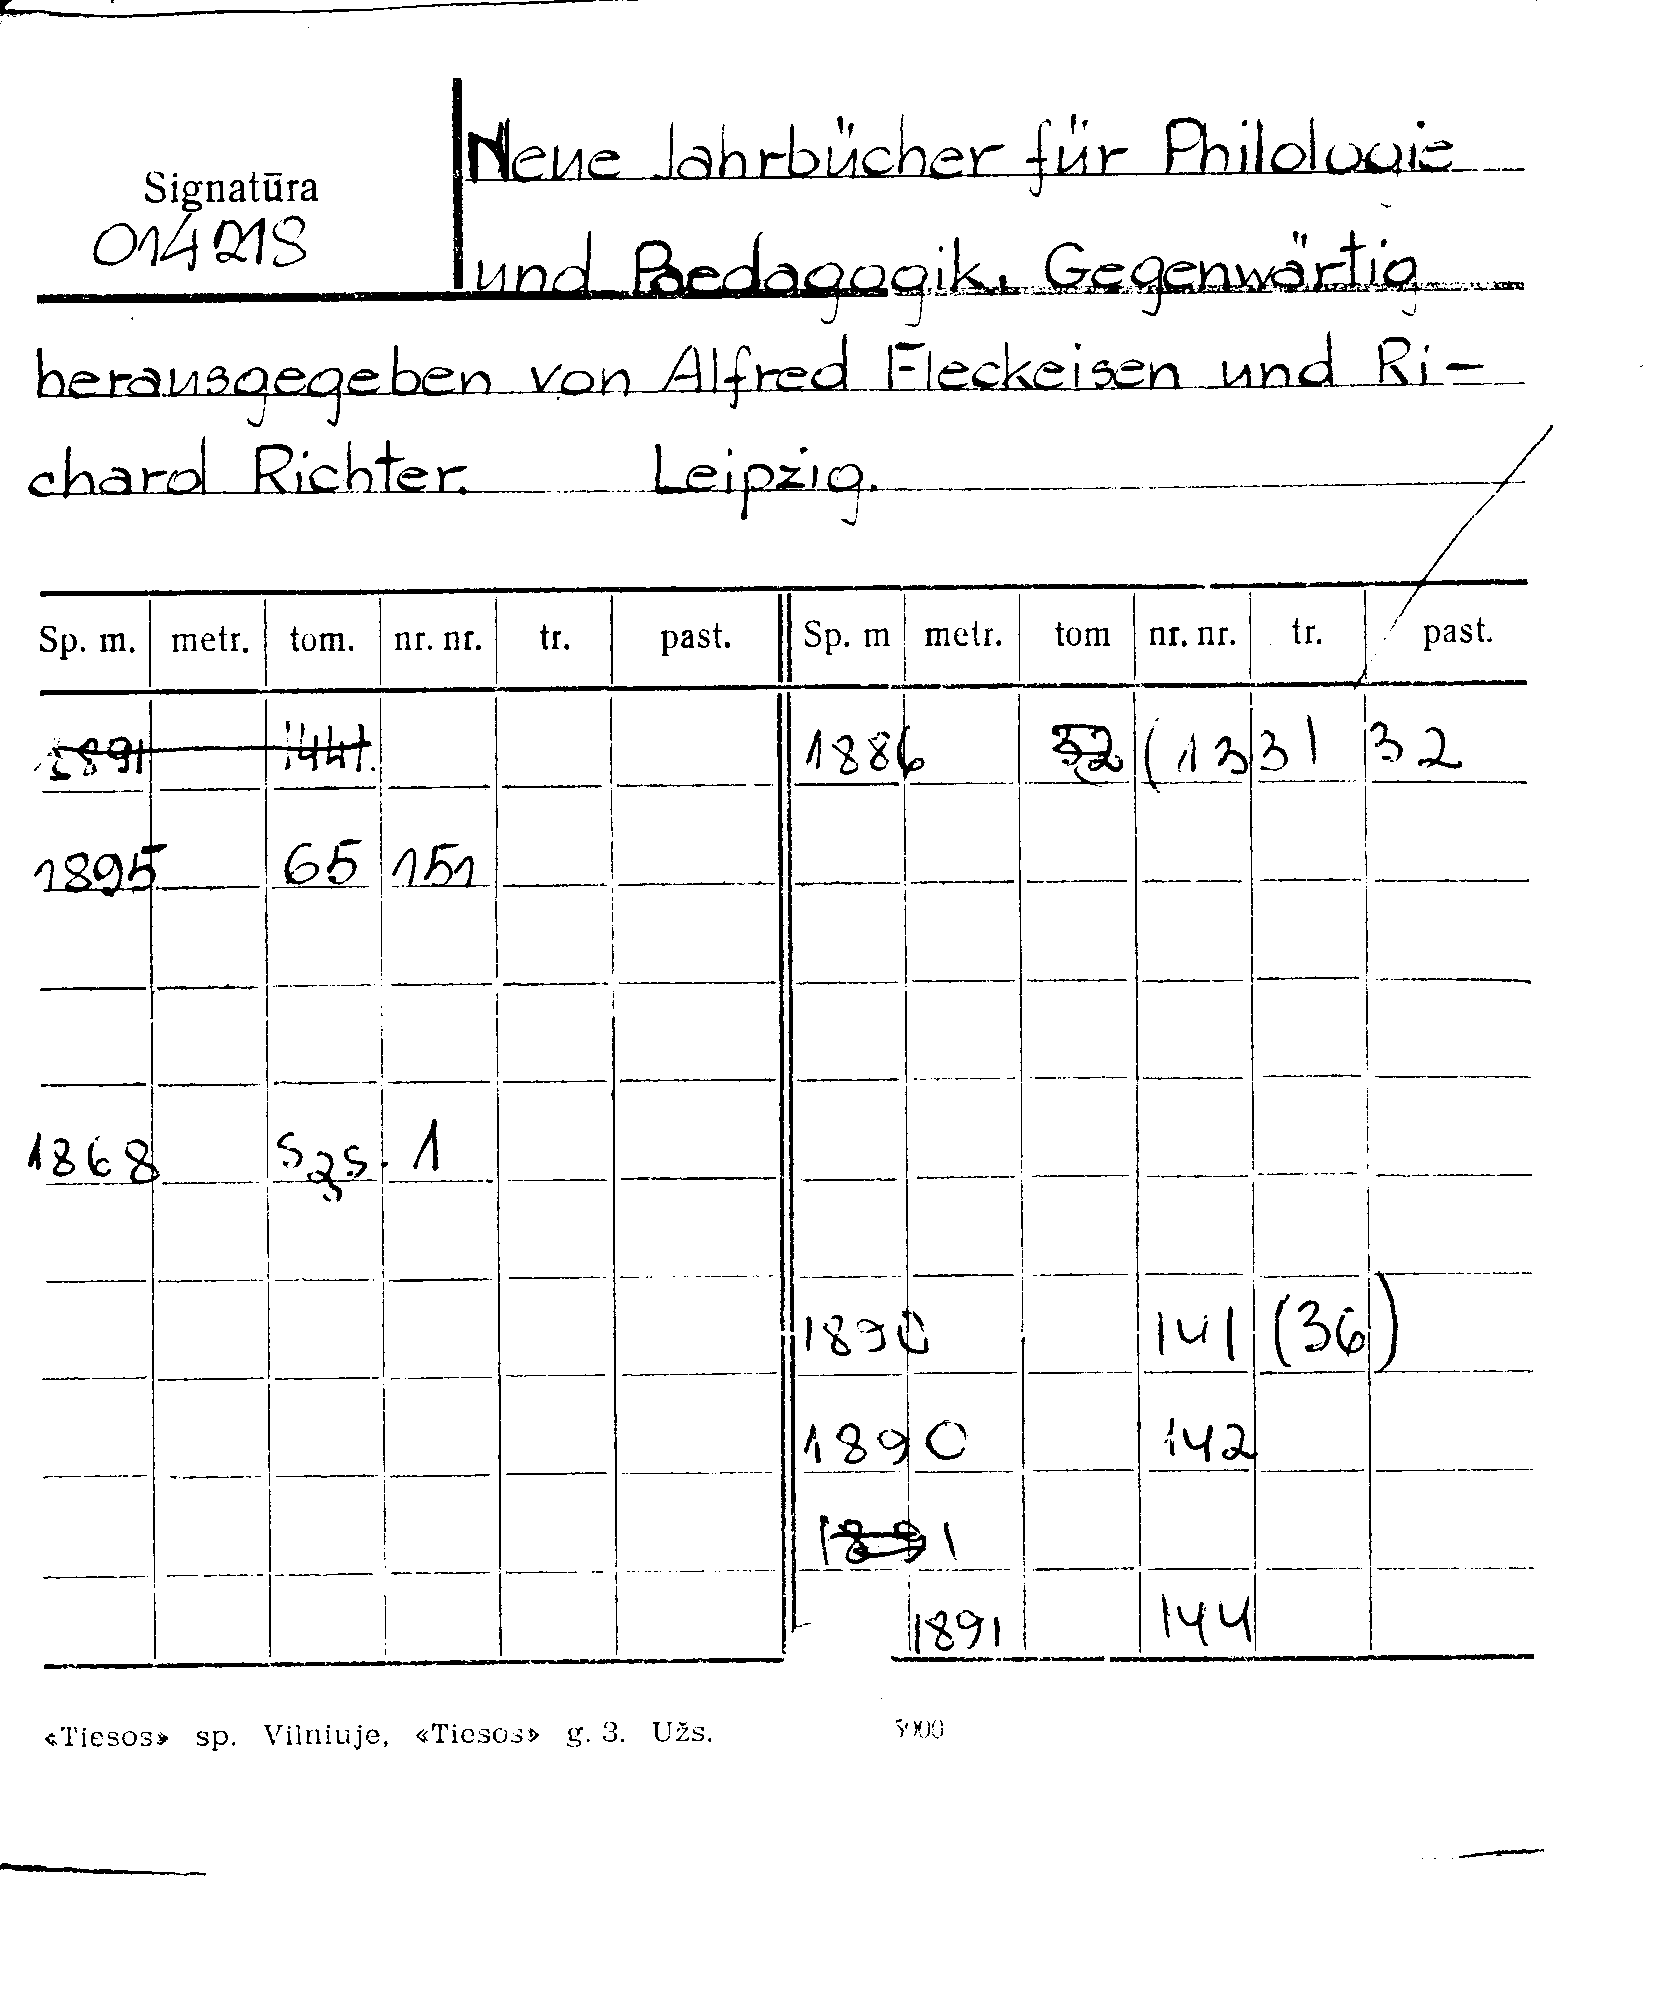 Neue Jahrbücher für Philologie
Signatūra
014218
und Paedagogik. Gegenwärtig
herausgegeben von Alfred Fleckeisen und Ri-
chard Richter. Leipzig.
Sp. m. metr. tom. nr. nr. tr. past. Sp. m metr. tom nr. nr. tr. past.
1891 144 1886 32 (133) 32
1895 65 151
1868 1
1890 141 (36)
1890 142
1891
1891 144
«Tiesos» sp. Vilniuje, «Tiesos» g. 3. Užs.